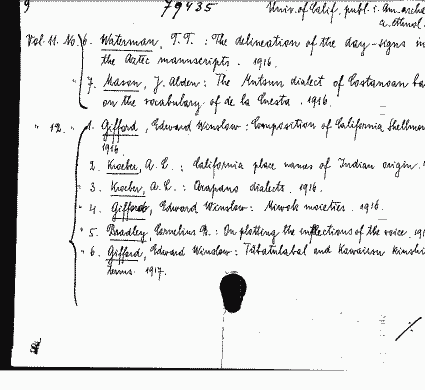 9 79435 Univ. of Calif. publ. i. Am. archa
a. Ethnol.
Vol. 11. No. 6. Waterman, T. T. : The delineation of the day-signs in
the Aztec manuscripts. 1916.
" 7. Mason, J. Alden: The Mutsun dialect of Costanoan ba
on the vocabulary of de la Cuesta. 1916.
" 12. " 1. Gifford, Edward Winslow: Composition of California Shellmou
1916
" 2. Kroeber, A. L. : California place names of Indian origin.
" 3. Kroeber, A. L. : Arapaho dialects. 1916.
" 4. Gifford, Edward Winslow: Miwok moieties. 1916.
" 5. Bradley, Cornelius B. : On plotting the inflections of the voice. 191
" 6. Gifford, Edward Winslow: Tübatulabal and Kawaiisu kinshi
terms. 1917.